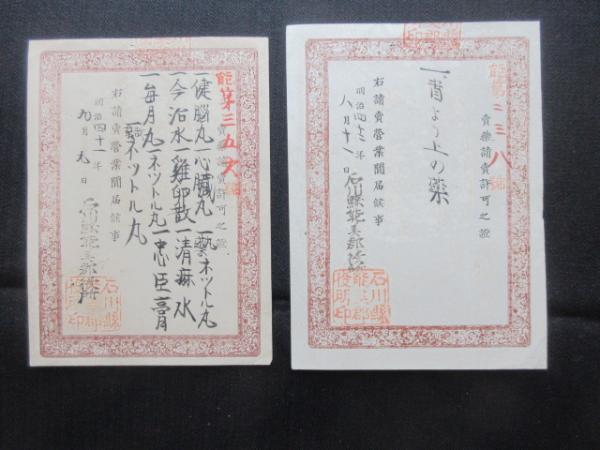 賣藥請賣許可之證
一健腦丸一心臓丸一
一今治水一雞卵散一清痳水
一毎月丸一ネツトル丸一忠臣膏
ネツトル丸
右請賣營業聞届候事
明治四十一年
九月九日
石川縣能美郡役所
石川縣能美郡役所印
賣藥請賣許可之證
一背よう上の藥
右請賣營業聞届候事
明治四十三年
八月十一日
石川縣能美郡役所
石川縣能美郡役所印